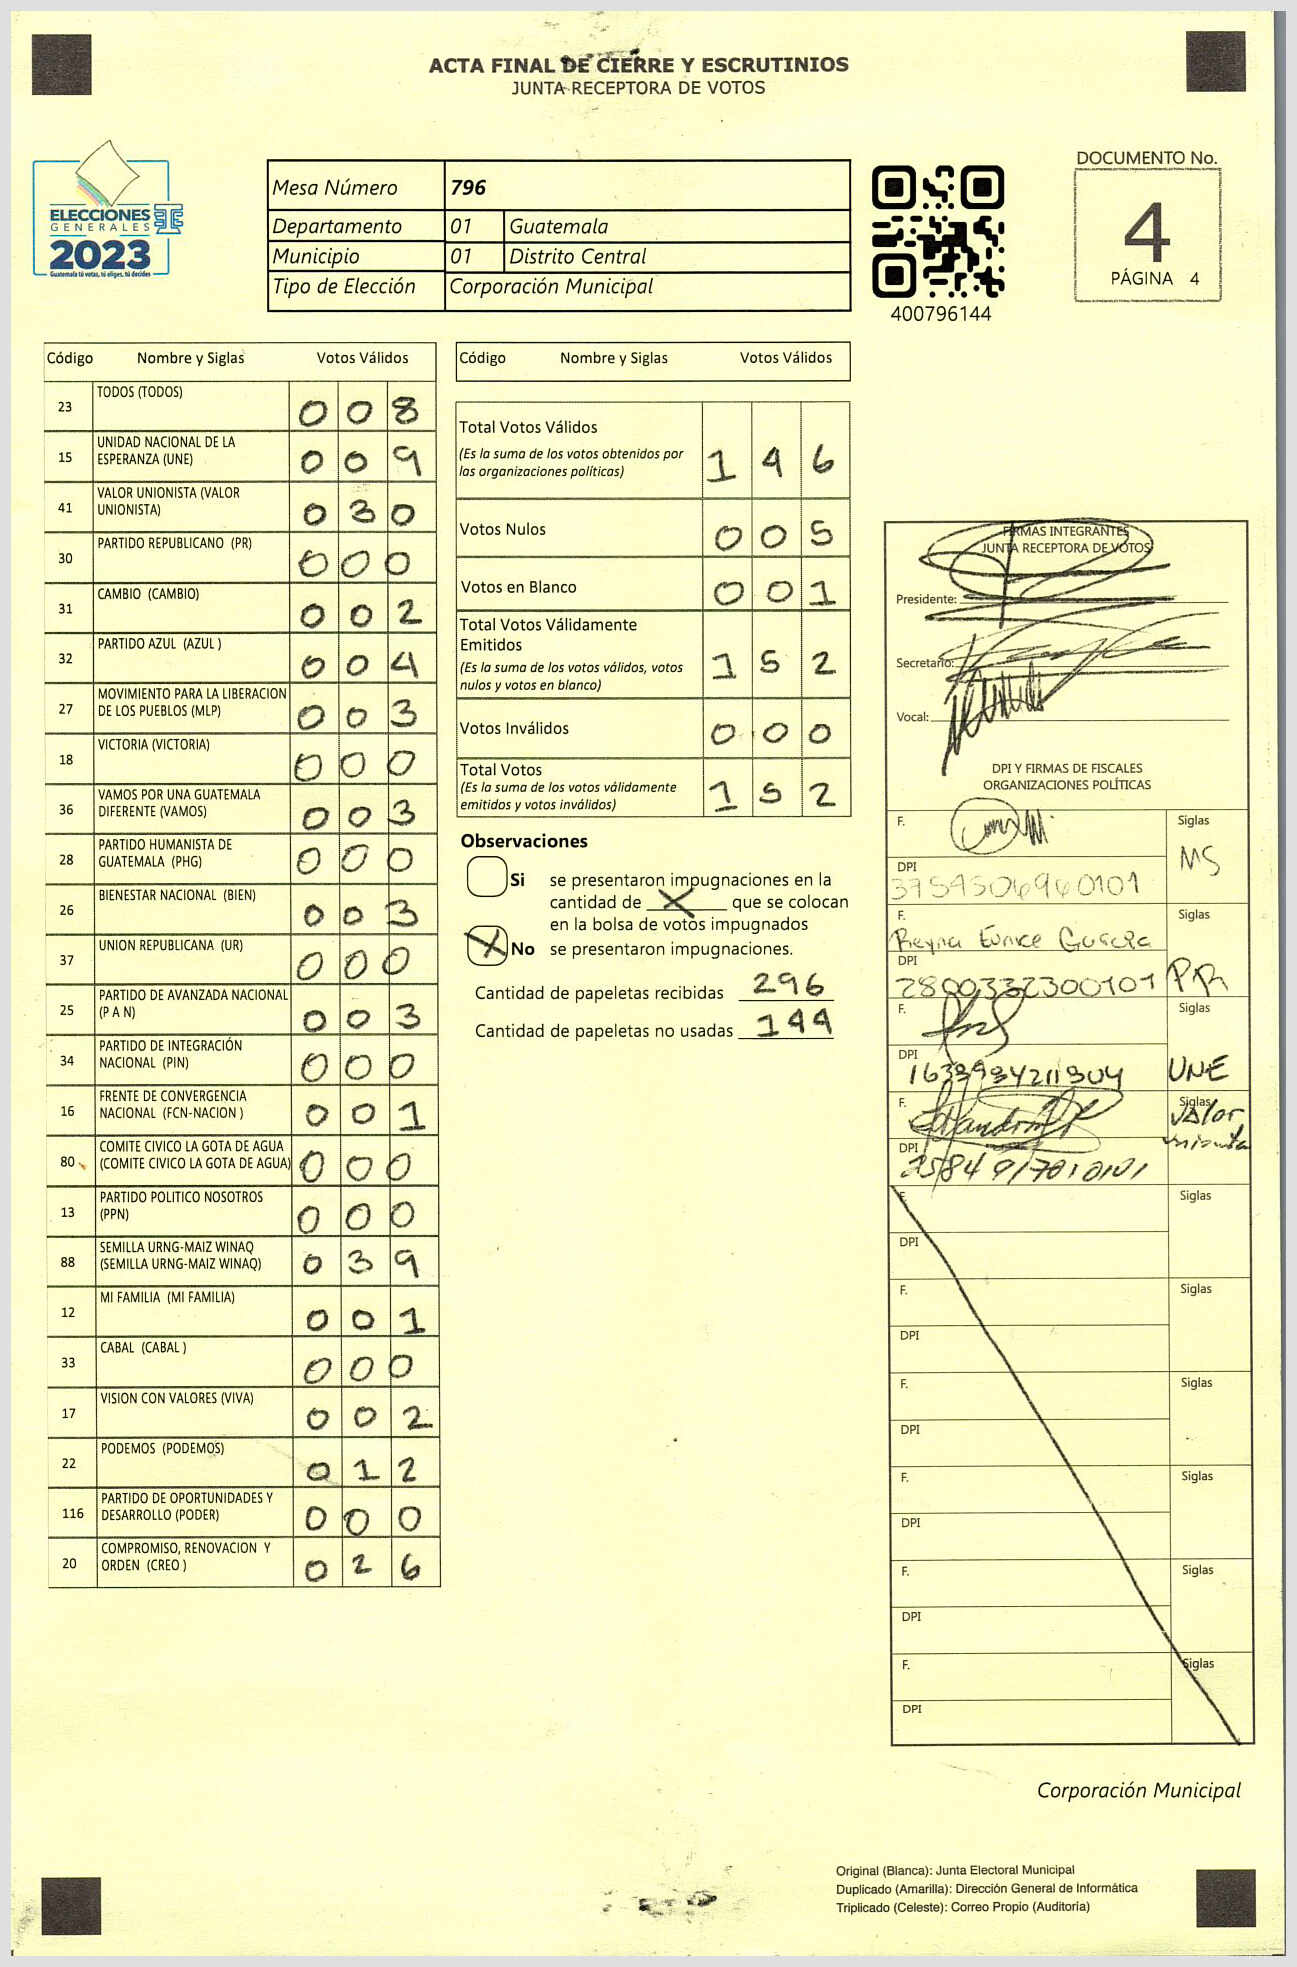 ACTA FINAL DE CIERRE Y ESCRUTINIOS
JUNTA RECEPTORA DE VOTOS
ELECCIONES
GENERALES
2023
Guatemala tú votas, tú eliges, tú decides
Mesa Número 796
Departamento 01 Guatemala
Municipio 01 Distrito Central
Tipo de Elección Corporación Municipal
400796144
DOCUMENTO No.
4
PÁGINA 4
Código Nombre y Siglas Votos Válidos
23 TODOS (TODOS) 0 0 8
15 UNIDAD NACIONAL DE LA
ESPERANZA (UNE) 0 0 9
41 VALOR UNIONISTA (VALOR
UNIONISTA) 0 3 0
30 PARTIDO REPUBLICANO (PR) 0 0 0
31 CAMBIO (CAMBIO) 0 0 2
32 PARTIDO AZUL (AZUL ) 0 0 4
27 MOVIMIENTO PARA LA LIBERACION
DE LOS PUEBLOS (MLP) 0 0 3
18 VICTORIA (VICTORIA) 0 0 0
36 VAMOS POR UNA GUATEMALA
DIFERENTE (VAMOS) 0 0 3
28 PARTIDO HUMANISTA DE
GUATEMALA (PHG) 0 0 0
26 BIENESTAR NACIONAL (BIEN) 0 0 3
37 UNION REPUBLICANA (UR) 0 0 0
25 PARTIDO DE AVANZADA NACIONAL
(P A N) 0 0 3
34 PARTIDO DE INTEGRACIÓN
NACIONAL (PIN) 0 0 0
16 FRENTE DE CONVERGENCIA
NACIONAL (FCN-NACION ) 0 0 1
80 COMITE CIVICO LA GOTA DE AGUA
(COMITE CIVICO LA GOTA DE AGUA) 0 0 0
13 PARTIDO POLITICO NOSOTROS
(PPN) 0 0 0
88 SEMILLA URNG-MAIZ WINAQ
(SEMILLA URNG-MAIZ WINAQ) 0 3 9
12 MI FAMILIA (MI FAMILIA) 0 0 1
33 CABAL (CABAL ) 0 0 0
17 VISION CON VALORES (VIVA) 0 0 2
22 PODEMOS (PODEMOS) 0 1 2
116 PARTIDO DE OPORTUNIDADES Y
DESARROLLO (PODER) 0 0 0
20 COMPROMISO, RENOVACION Y
ORDEN (CREO ) 0 2 6
Código Nombre y Siglas Votos Válidos
Total Votos Válidos
(Es la suma de los votos obtenidos por
las organizaciones políticas) 1 4 6
Votos Nulos 0 0 5
Votos en Blanco 0 0 1
Total Votos Válidamente
Emitidos
(Es la suma de los votos válidos, votos
nulos y votos en blanco) 1 5 2
Votos Inválidos 0 0 0
Total Votos
(Es la suma de los votos válidamente
emitidos y votos inválidos) 1 5 2
Observaciones
Si se presentaron impugnaciones en la
cantidad de X que se colocan
en la bolsa de votos impugnados
X No se presentaron impugnaciones.
Cantidad de papeletas recibidas 296
Cantidad de papeletas no usadas 144
FIRMAS INTEGRANTES
JUNTA RECEPTORA DE VOTOS
Presidente:
Secretario:
Vocal:
DPI Y FIRMAS DE FISCALES
ORGANIZACIONES POLÍTICAS
F. Siglas
MS
DPI
F. Siglas
Reyna Eunice Garcia
DPI
2800332300101 PR
F. Siglas
DPI
UNE
F. Siglas
Valor
unionista
DPI
F. Siglas
DPI
F. Siglas
DPI
F. Siglas
DPI
F. Siglas
DPI
F. Siglas
DPI
F. Siglas
DPI
Corporación Municipal
Original (Blanca): Junta Electoral Municipal
Duplicado (Amarilla): Dirección General de Informática
Triplicado (Celeste): Correo Propio (Auditoría)